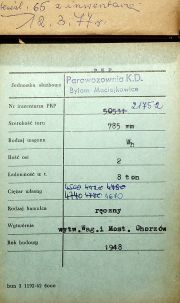 skreśl. 65 z inwentarza
12.3.77r
P K P
Jednostka służbowa
Parowozownia K.D.
Bytom Maciejkowice
Nr inwentarza PKP 50531 21752
Szerokość toru 785 mm
Rodzaj wagonu Wh
Ilość osi 2
Ładowność w t. 8 ton
Ciężar własny 4500 4720 4750
4740 4780 4670
Rodzaj hamulca ręczny
Wytwórnia wytw.Wag.i Most. Chorzów
Rok budowy 1948